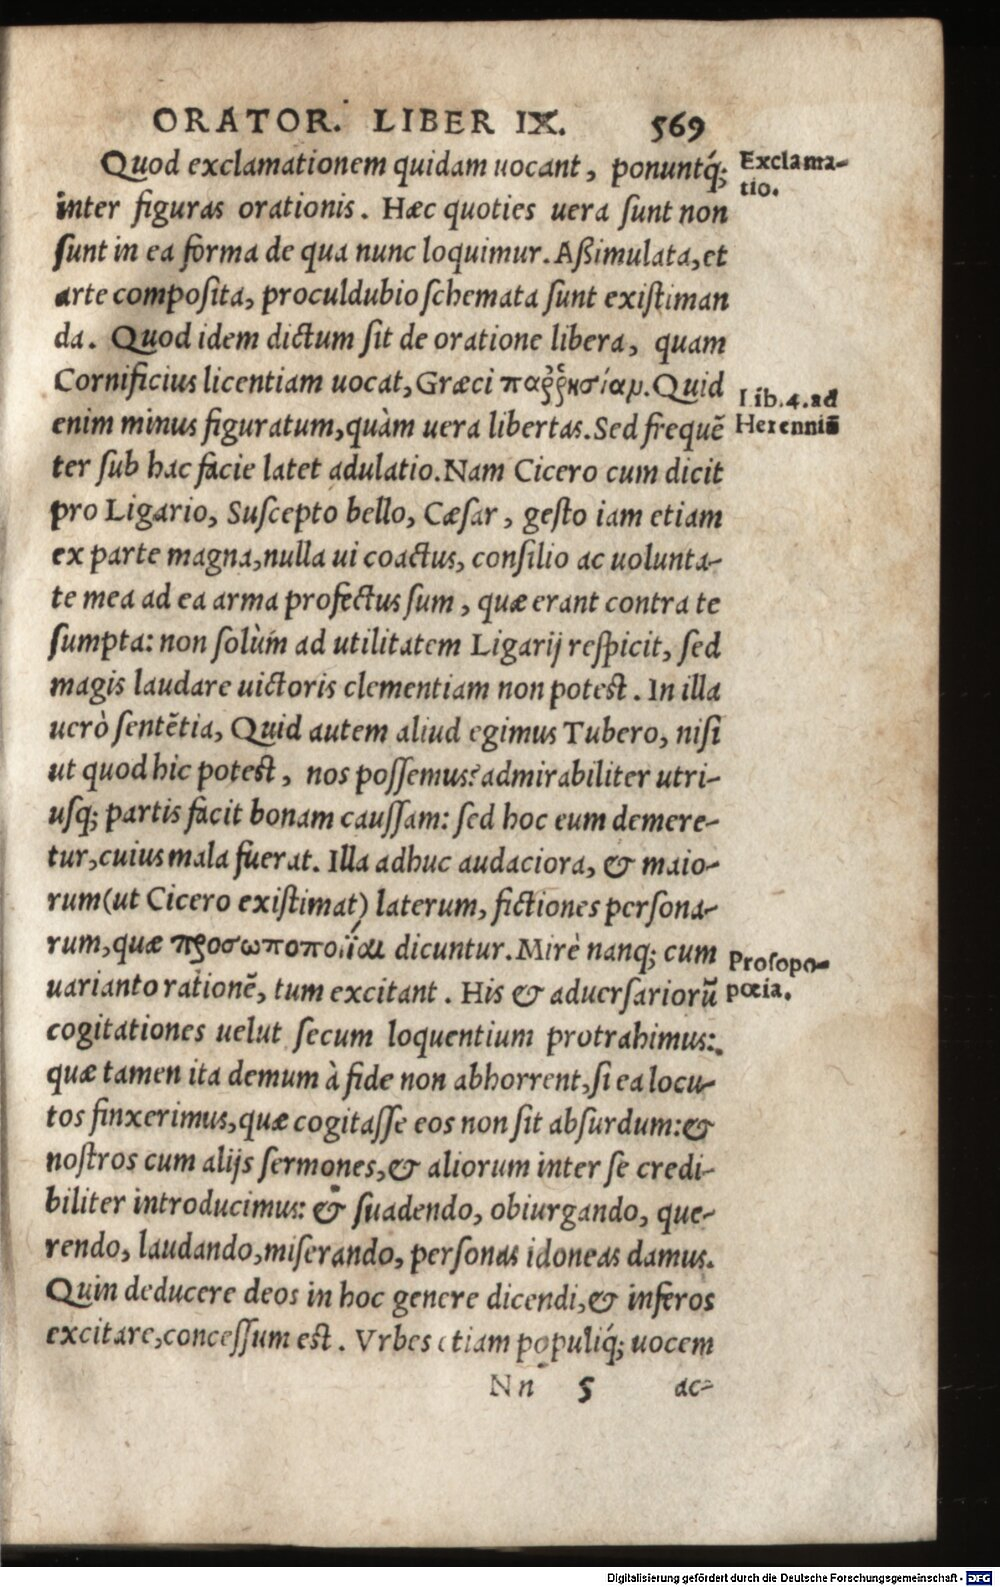 ORATOR. LIBER IX. 569
Quod exclamationem quidam uocant, ponuntq́;
Exclama-
tio.
inter figuras orationis. Hæc quoties uera sunt non
sunt in ea forma de qua nunc loquimur. Aßimulata, et
arte composita, proculdubio schemata sunt existiman
da. Quod idem dictum sit de oratione libera, quam
Cornificius licentiam uocat, Græci παῤῥησίαν. Quid
Lib. 4. ad
Herenniū
enim minus figuratum, quàm uera libertas. Sed frequē
ter sub hac facie latet adulatio. Nam Cicero cum dicit
pro Ligario, Suscepto bello, Cæsar, gesto iam etiam
ex parte magna, nulla ui coactus, consilio ac uolunta-
te mea ad ea arma profectus sum, quæ erant contra te
sumpta: non solùm ad utilitatem Ligarij respicit, sed
magis laudare uictoris clementiam non potest. In illa
uerò sentētia, Quid autem aliud egimus Tubero, nisi
ut quod hic potest, nos possemus? admirabiliter utri-
usq; partis facit bonam caussam: sed hoc eum demere-
tur, cuius mala fuerat. Illa adhuc audaciora, & maio-
rum (ut Cicero existimat) laterum, fictiones persona-
rum, quæ προσωποποιΐαι dicuntur. Mirè nanq; cum
Prosopo-
pœia.
uariant orationē, tum excitant. His & aduersariorū
cogitationes uelut secum loquentium protrahimus:
quæ tamen ita demum à fide non abhorrent, si ea locu-
tos finxerimus, quæ cogitasse eos non sit absurdum: &
nostros cum alijs sermones, & aliorum inter se credi-
biliter introducimus: & suadendo, obiurgando, que-
rendo, laudando, miserando, personas idoneas damus.
Quin deducere deos in hoc genere dicendi, & inferos
excitare, concessum est. Vrbes etiam populiq́; uocem
Nn 5 ac-
Digitalisierung gefördert durch die Deutsche Forschungsgemeinschaft - DFG